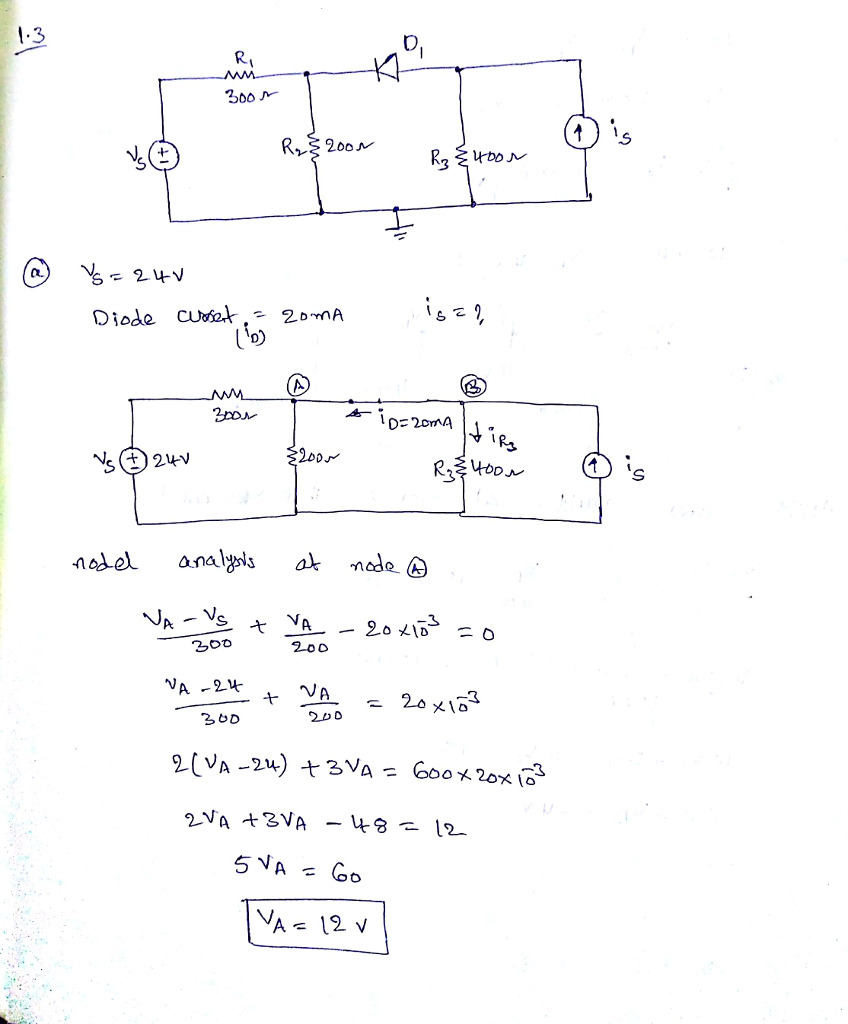 1.3
R₁
300 Ω
D₁
Vs
R₂ 200 Ω
R₃ 400 Ω
is
ⓐ Vs = 24V
Diode current = 20mA is = ?
(iD)
Ⓐ Ⓑ
300Ω
iD=20mA
↓ iR₃
Vs 24V
200Ω
R₃ 400Ω
is
nodel analysis at node Ⓐ
VA - Vs / 300 + VA / 200 - 20 × 10⁻³ = 0
VA - 24 / 300 + VA / 200 = 20 × 10⁻³
2(VA - 24) + 3VA = 600 × 20 × 10⁻³
2VA + 3VA - 48 = 12
5 VA = 60
VA = 12 V